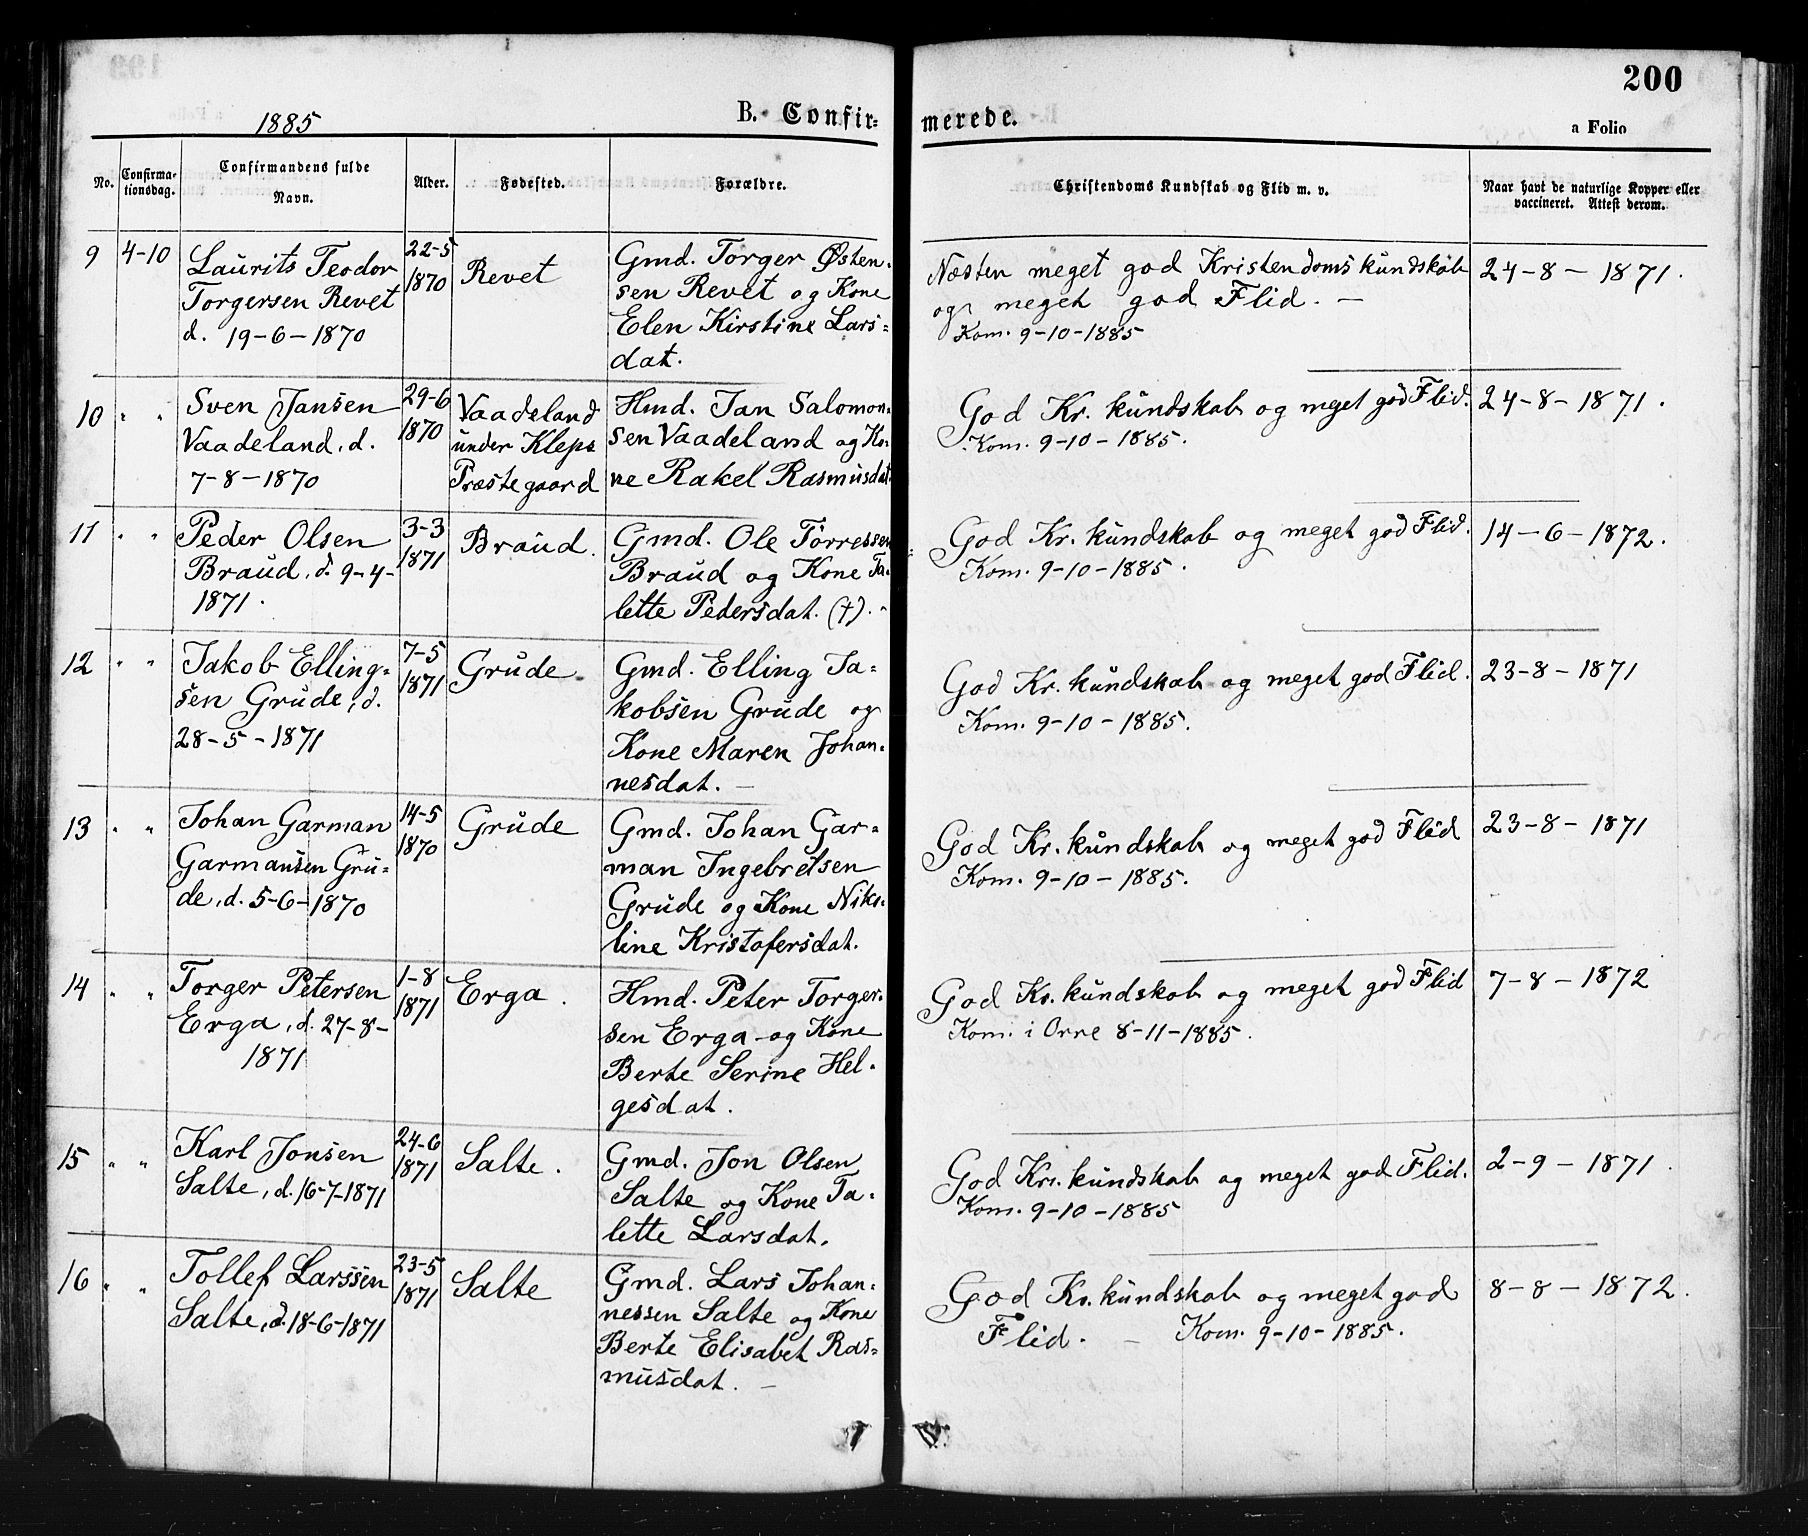 200
1885
B. Confir-
merede.
a Folio
No.
Confirma-
tionsdag.
Confirmandens fulde
Navn.
Alder.
Fødested.
Forældre.
Christendoms Kundskab og Flid m. v.
Naar havt de naturlige Kopper eller
vaccineret. Attest derom.
9
4-10
Laurits Teodor
Torgersen Revet
d. 19-6-1870
22-5
1870
Revet
Gmd. Torger Østen-
sen Revet og Kone
Elen Kirstine Lars-
dat.
Næsten meget god Kristendomskundskab
og meget god Flid. —
Kom. 9-10-1885
24-8-1871.
10
" "
Sven Jansen
Vaadeland, d.
7-8-1870
29-6
1870
Vaadeland
under Kleps
Præstegaard
Hmd. Jan Salomon-
sen Vaadeland og Ko-
ne Rakel Rasmusdat.
God Kr. kundskab og meget god Flid.
Kom. 9-10-1885.
24-8-1871.
11
" "
Peder Olsen
Braud, d. 9-4-
1871.
3-3
1871
Braud.
Gmd. Ole Torressen
Braud og Kone Ta-
lette Pedersdat. (†).
God Kr. kundskab og meget god Flid.
Kom. 9-10-1885.
14-6-1872.
12
" "
Jakob Elling-
sen Grude, d.
28-5-1871
7-5
1871
Grude.
Gmd. Elling Ja-
kobsen Grude og
Kone Maren Johan-
nesdat. —
God Kr. kundskab og meget god Flid.
Kom. 9-10-1885.
23-8-1871
13
" "
Johan Garman
Garmansen Gru-
de, d. 5-6-1870
14-5
1870
Grude
Gmd. Johan Gar-
man Ingebretsen
Grude og Kone Niko-
line Kristofersdat.
God Kr. kundskab og meget god Flid
Kom. 9-10-1885.
23-8-1871
14
" "
Torger Petersen
Erga, d. 27-8-
1871
1-8
1871
Erga.
Hmd. Peter Torger-
sen Erga og Kone
Berte Serine Hel-
gesdat.
God Kr. kundskab og meget god Flid
Kom. i Orre 8-11-1885.
7-8-1872
15
" "
Karl Jonsen
Salte, d. 16-7-1871
24-6
1871
Salte.
Gmd. Jon Olsen
Salte og Kone Ta-
lette Larsdat.
God Kr. kundskab og meget god Flid.
Kom. 9-10-1885
2-9-1871.
16
" "
Tollef Larssen
Salte, d. 18-6-1871
23-5
1871
Salte
Gmd. Lars Johan-
nessen Salte og Kone
Berte Elisabet Ras-
musdat. —
God Kr. kundskab og meget god
Flid. — Kom. 9-10-1885.
8-8-1872.